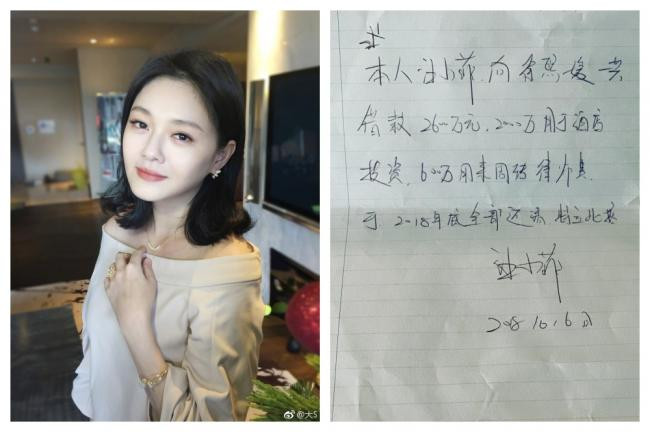 本人汪小菲,向徐熙媛共
借款 2600万元,2000万用于酒店
投资,600万用来周转
于 2018年底全部还清,特立此
汪小菲
2018.10.6日
@大S